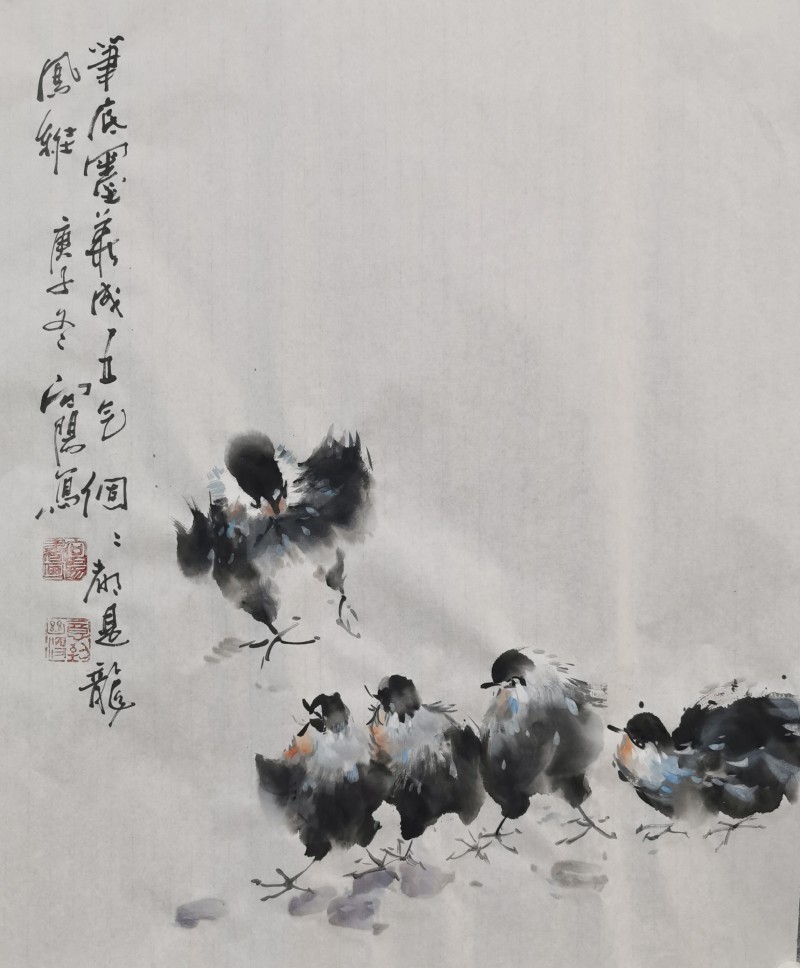 筆底墨成五色個〻都是龍
鳳雛 庚子冬 向陽寫